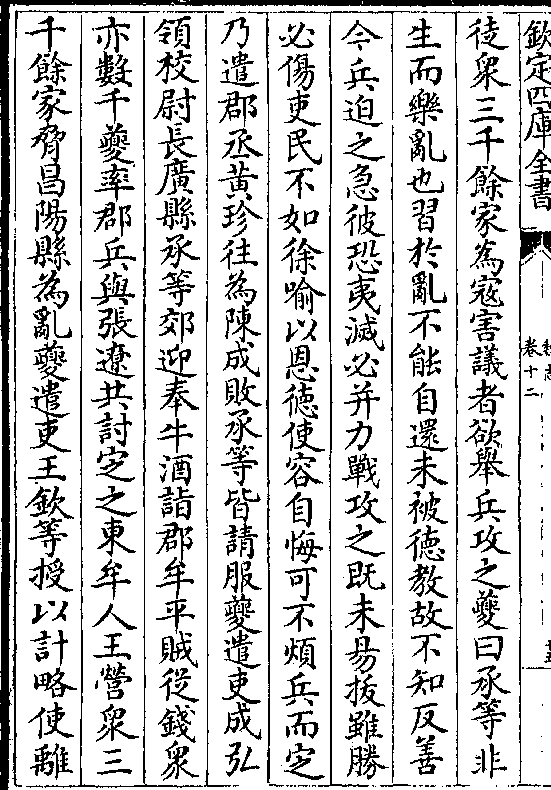 欽定四庫全書
卷十二
徒衆三千餘家為宼害議者欲舉兵攻之夔曰承等非
生而樂亂也習於亂不能自還未被徳教故不知反善
今兵迫之急彼恐夷滅必并力戰攻之既未易拔雖勝
必傷吏民不如徐喻以恩徳使容自悔可不煩兵而定
乃遣郡丞黄珍往為陳成敗承等皆請服夔遣吏成弘
領校尉長廣縣承等郊迎奉牛酒詣郡牟平賊從錢衆
亦數千夔率郡兵與張遼共討定之東牟人王營衆三
千餘家脅昌陽縣為亂夔遣吏王欽等授以計略使離